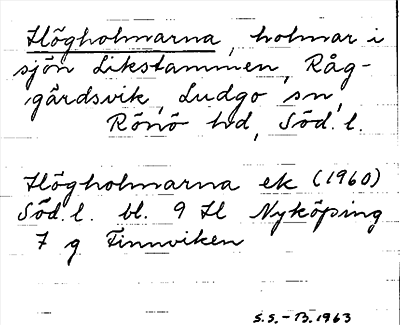 Högholmarna, holmar i
sjön Likstammen, Råg-
gårdsvik, Ludgo sn,
Rönö hd, Söd. l.
Högholmarna ek (1960)
Söd. l. bl. 9 H Nyköping
7 g Finnviken
S.S. - B. 1963